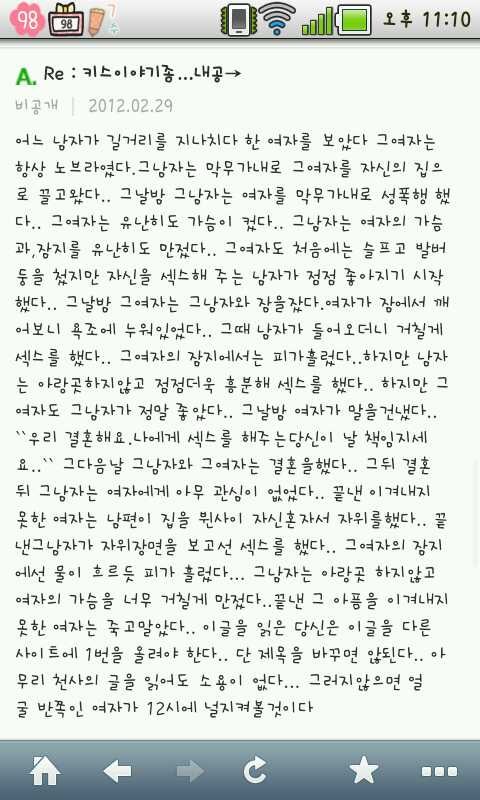 98
98
오후 11:10
A. Re : 키스이야기좀...내공→
비공개 | 2012.02.29
어느 남자가 길거리를 지나치다 한 여자를 보았다 그여자는
항상 노브라였다.그남자는 막무가내로 그여자를 자신의 집으
로 끌고왔다.. 그날밤 그남자는 여자를 막무가내로 성폭행 했
다.. 그여자는 유난히도 가슴이 컸다.. 그남자는 여자의 가슴
과,잠지를 유난히도 만졌다.. 그여자도 처음에는 슬프고 발버
둥을 쳤지만 자신을 섹스해 주는 남자가 점점 좋아지기 시작
했다.. 그날밤 그여자는 그남자와 잠을잤다.여자가 잠에서 깨
어보니 욕조에 누워있었다.. 그때 남자가 들어오더니 거칠게
섹스를 했다.. 그여자의 잠지에서는 피가흘렀다..하지만 남자
는 아랑곳하지않고 점점더욱 흥분해 섹스를 했다.. 하지만 그
여자도 그남자가 정말 좋았다.. 그날밤 여자가 말을건냈다..
``우리 결혼해요.나에게 섹스를 해주는당신이 날 책임지세
요..`` 그다음날 그남자와 그여자는 결혼을했다.. 그뒤 결혼
뒤 그남자는 여자에게 아무 관심이 없었다.. 끝낸 이겨내지
못한 여자는 남편이 집을 뷘사이 자신혼자서 자위를했다.. 끝
낸그남자가 자위장면을 보고선 섹스를 했다.. 그여자의 잠지
에선 물이 흐르듯 피가 흘렀다... 그남자는 아랑곳 하지않고
여자의 가슴을 너무 거칠게 만졌다..끝낸 그 아픔을 이겨내지
못한 여자는 죽고말았다.. 이글을 읽은 당신은 이글을 다른
사이트에 1번을 올려야 한다.. 단 제목을 바꾸면 않된다.. 아
무리 천사의 글을 읽어도 소용이 없다... 그러지않으면 얼
굴 반쪽인 여자가 12시에 널지켜볼것이다